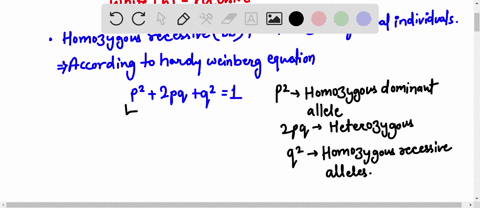 • Homozygous recessive (
al individuals.
⇒ According to hardy weinberg equation
p² + 2pq + q² = 1
p² → Homozygous dominant
allele
2pq → Heterozygous
q² → Homozygous recessive
alleles.